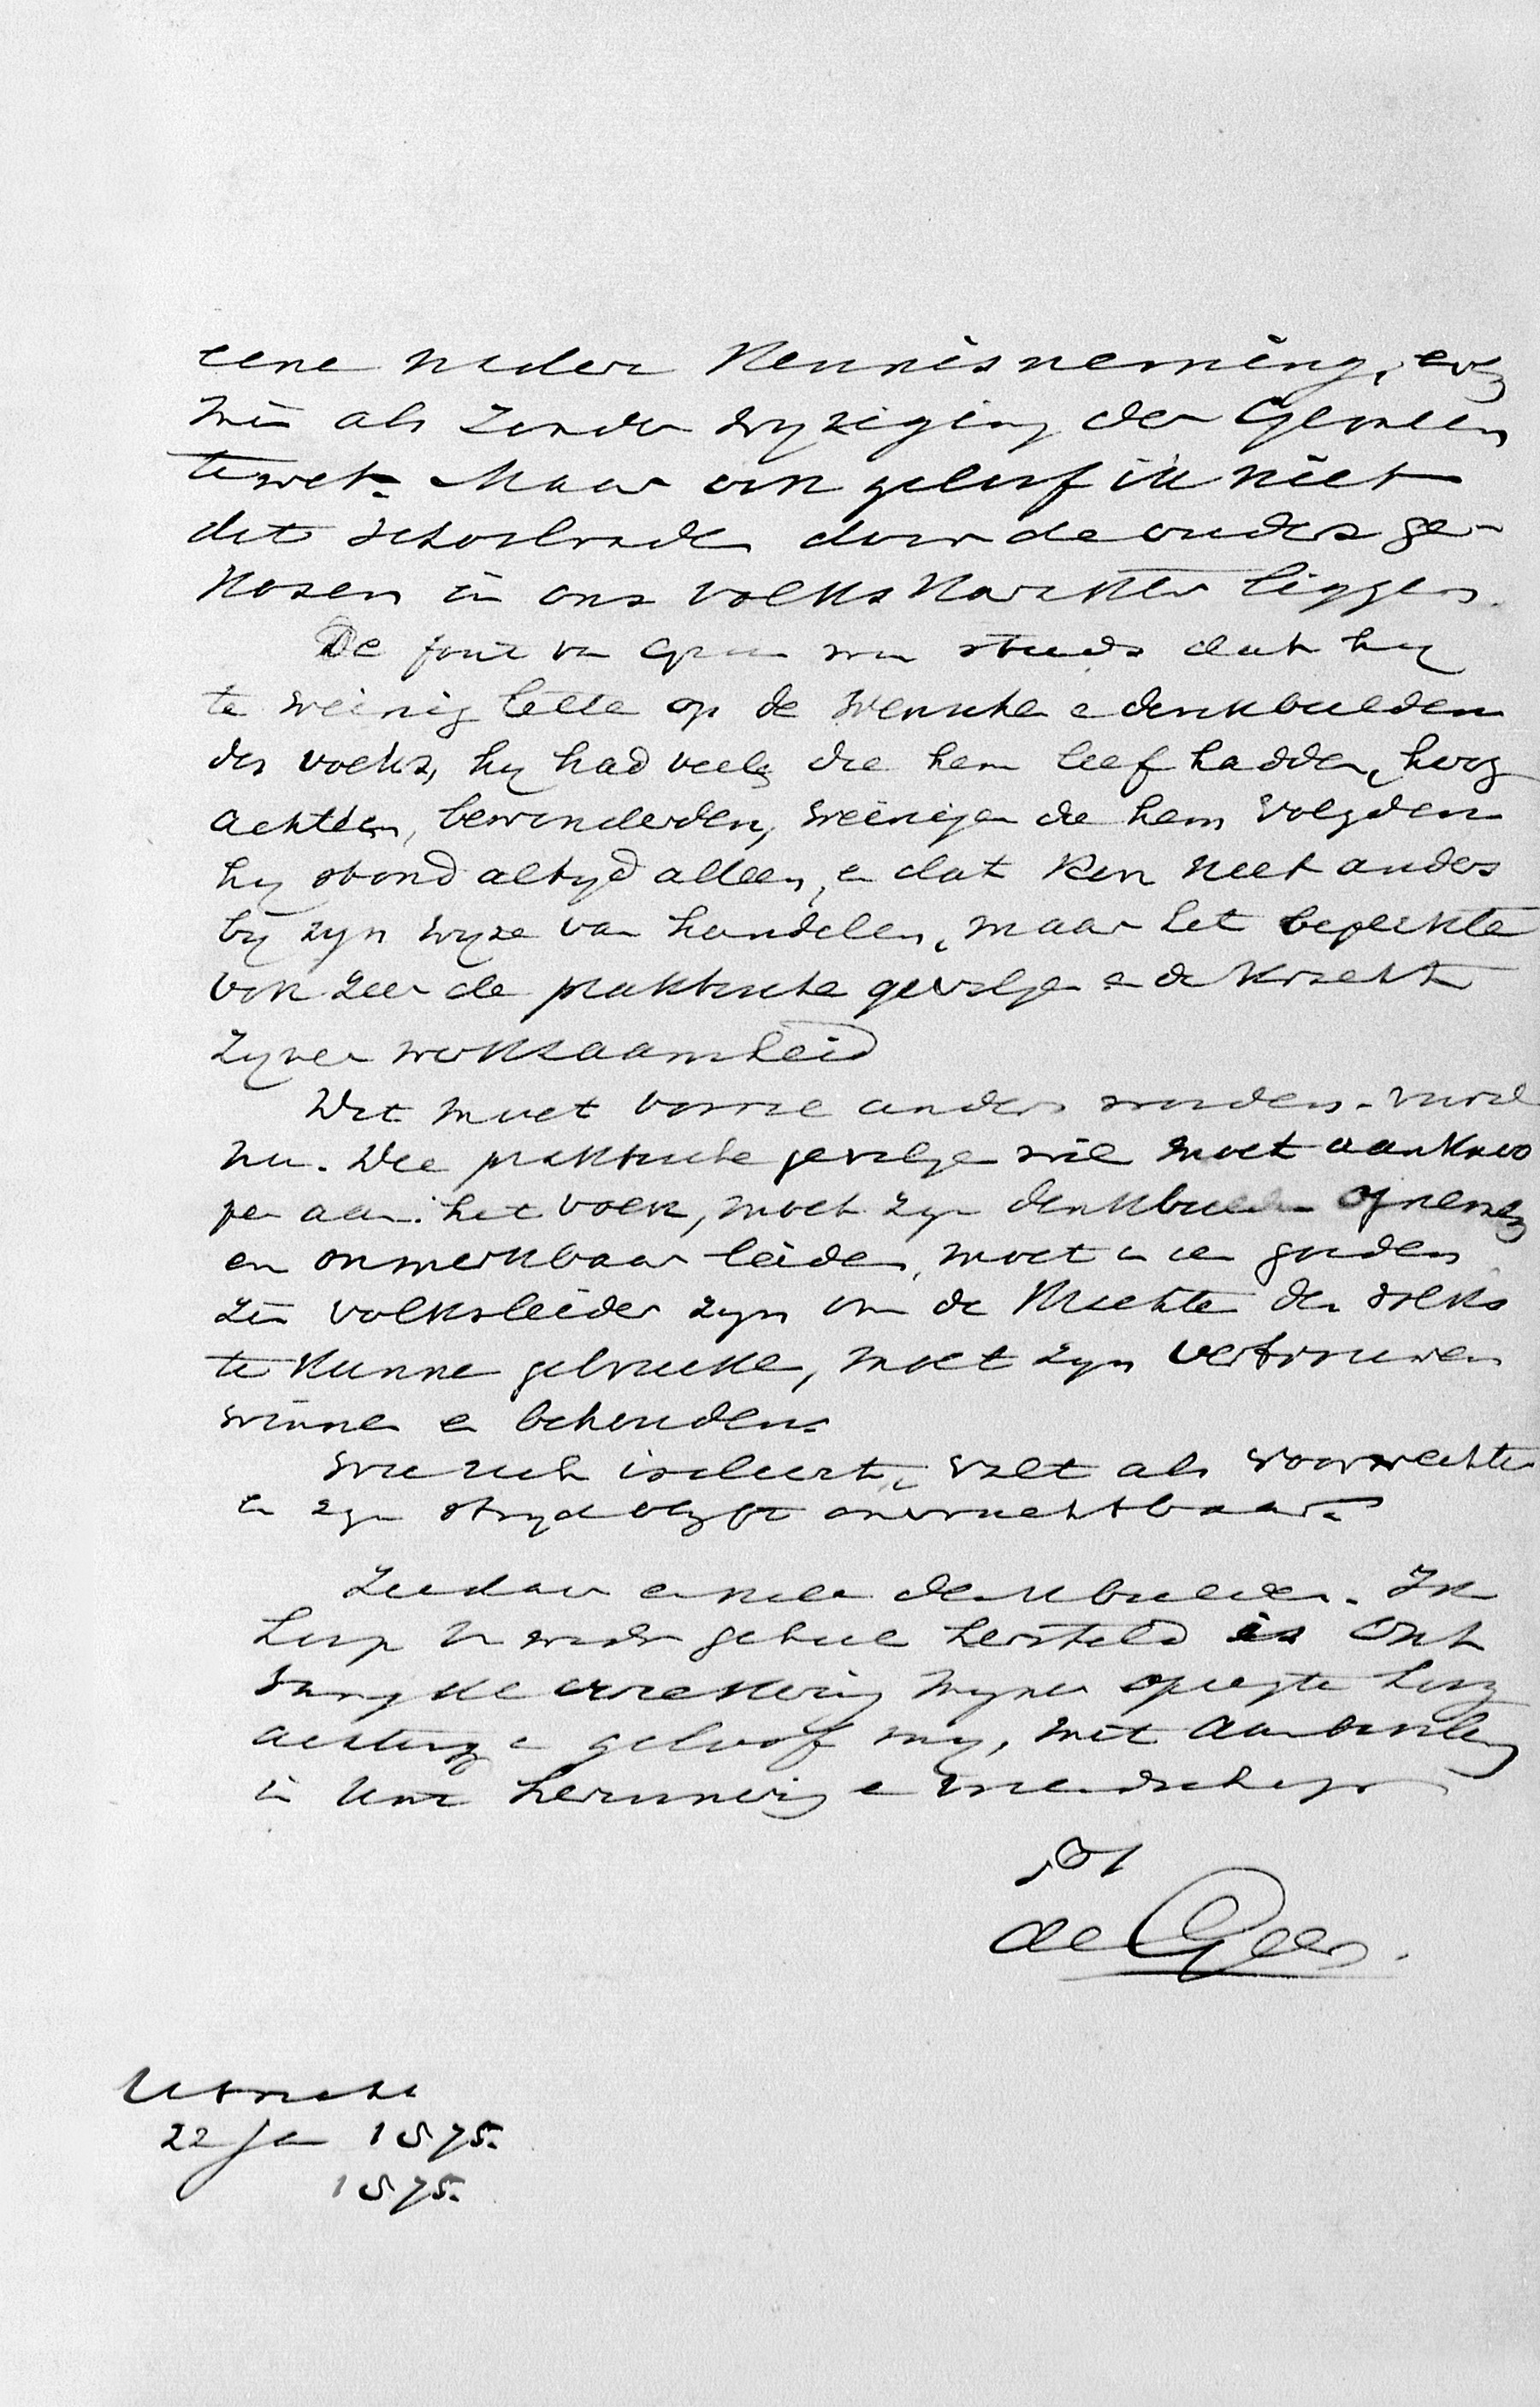 eene nader kennisneming, even
min als zonder wyziging der Gemeen
tewet. Maar ook geloof ik niet
dat schoolraden door de ouders ge-
kozen in ons volkskarakter liggen.
De fout van Groen was steeds dat hy
te weinig lette op de wenschen en denkbeelden
des volks, hy had veelen die hem lief hadden, hoog
achtten, bewonderden, weinigen die hem volgden
hy stond altyd alleen, en dat kon niet anders
by zyn wyze van handelen, maar het beperkte
ook zeer de praktische gevolgen en de kracht
zyner werkzaamheid
Dit moet vooral anders worden
nu. Wie praktische gevolgen wil moet aanknoo
pen aan het volk, moet zyn denkbeelden opnemen
en onmerkbaar leiden, moet in een goeden
zin volksleider zyn om de krachten des volks
te kunnen gebruiken, moet zyn vertrouwen
winnen en behouden.
Wie zich isoleert, valt als voorvechter
en zyn stryd blyft onvruchtbaar.
Ziedaar enkele denkbeelden. Ik
hoop U weder geheel hersteld is Ont
vang de verzekering myner opregte hoog
achting en geloof my, met aanbeveling
in Uwe herinnering en vriendschap
de Geer.
Utrecht
22 Jan 1875.
1875.